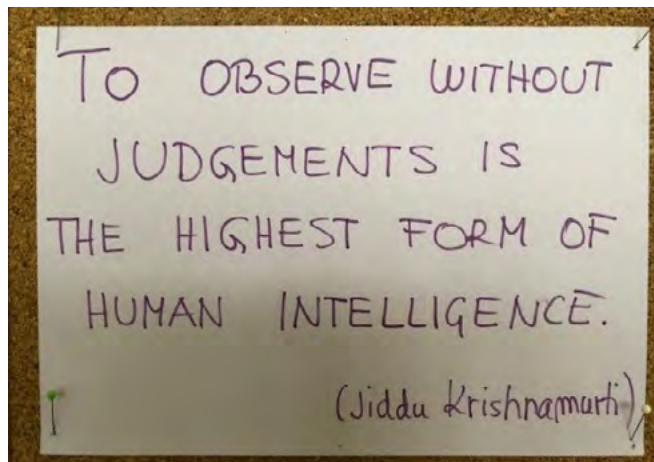 TO OBSERVE WITHOUT
JUDGEMENTS IS
THE HIGHEST FORM OF
HUMAN INTELLIGENCE.
(Jiddu Krishnamurti)